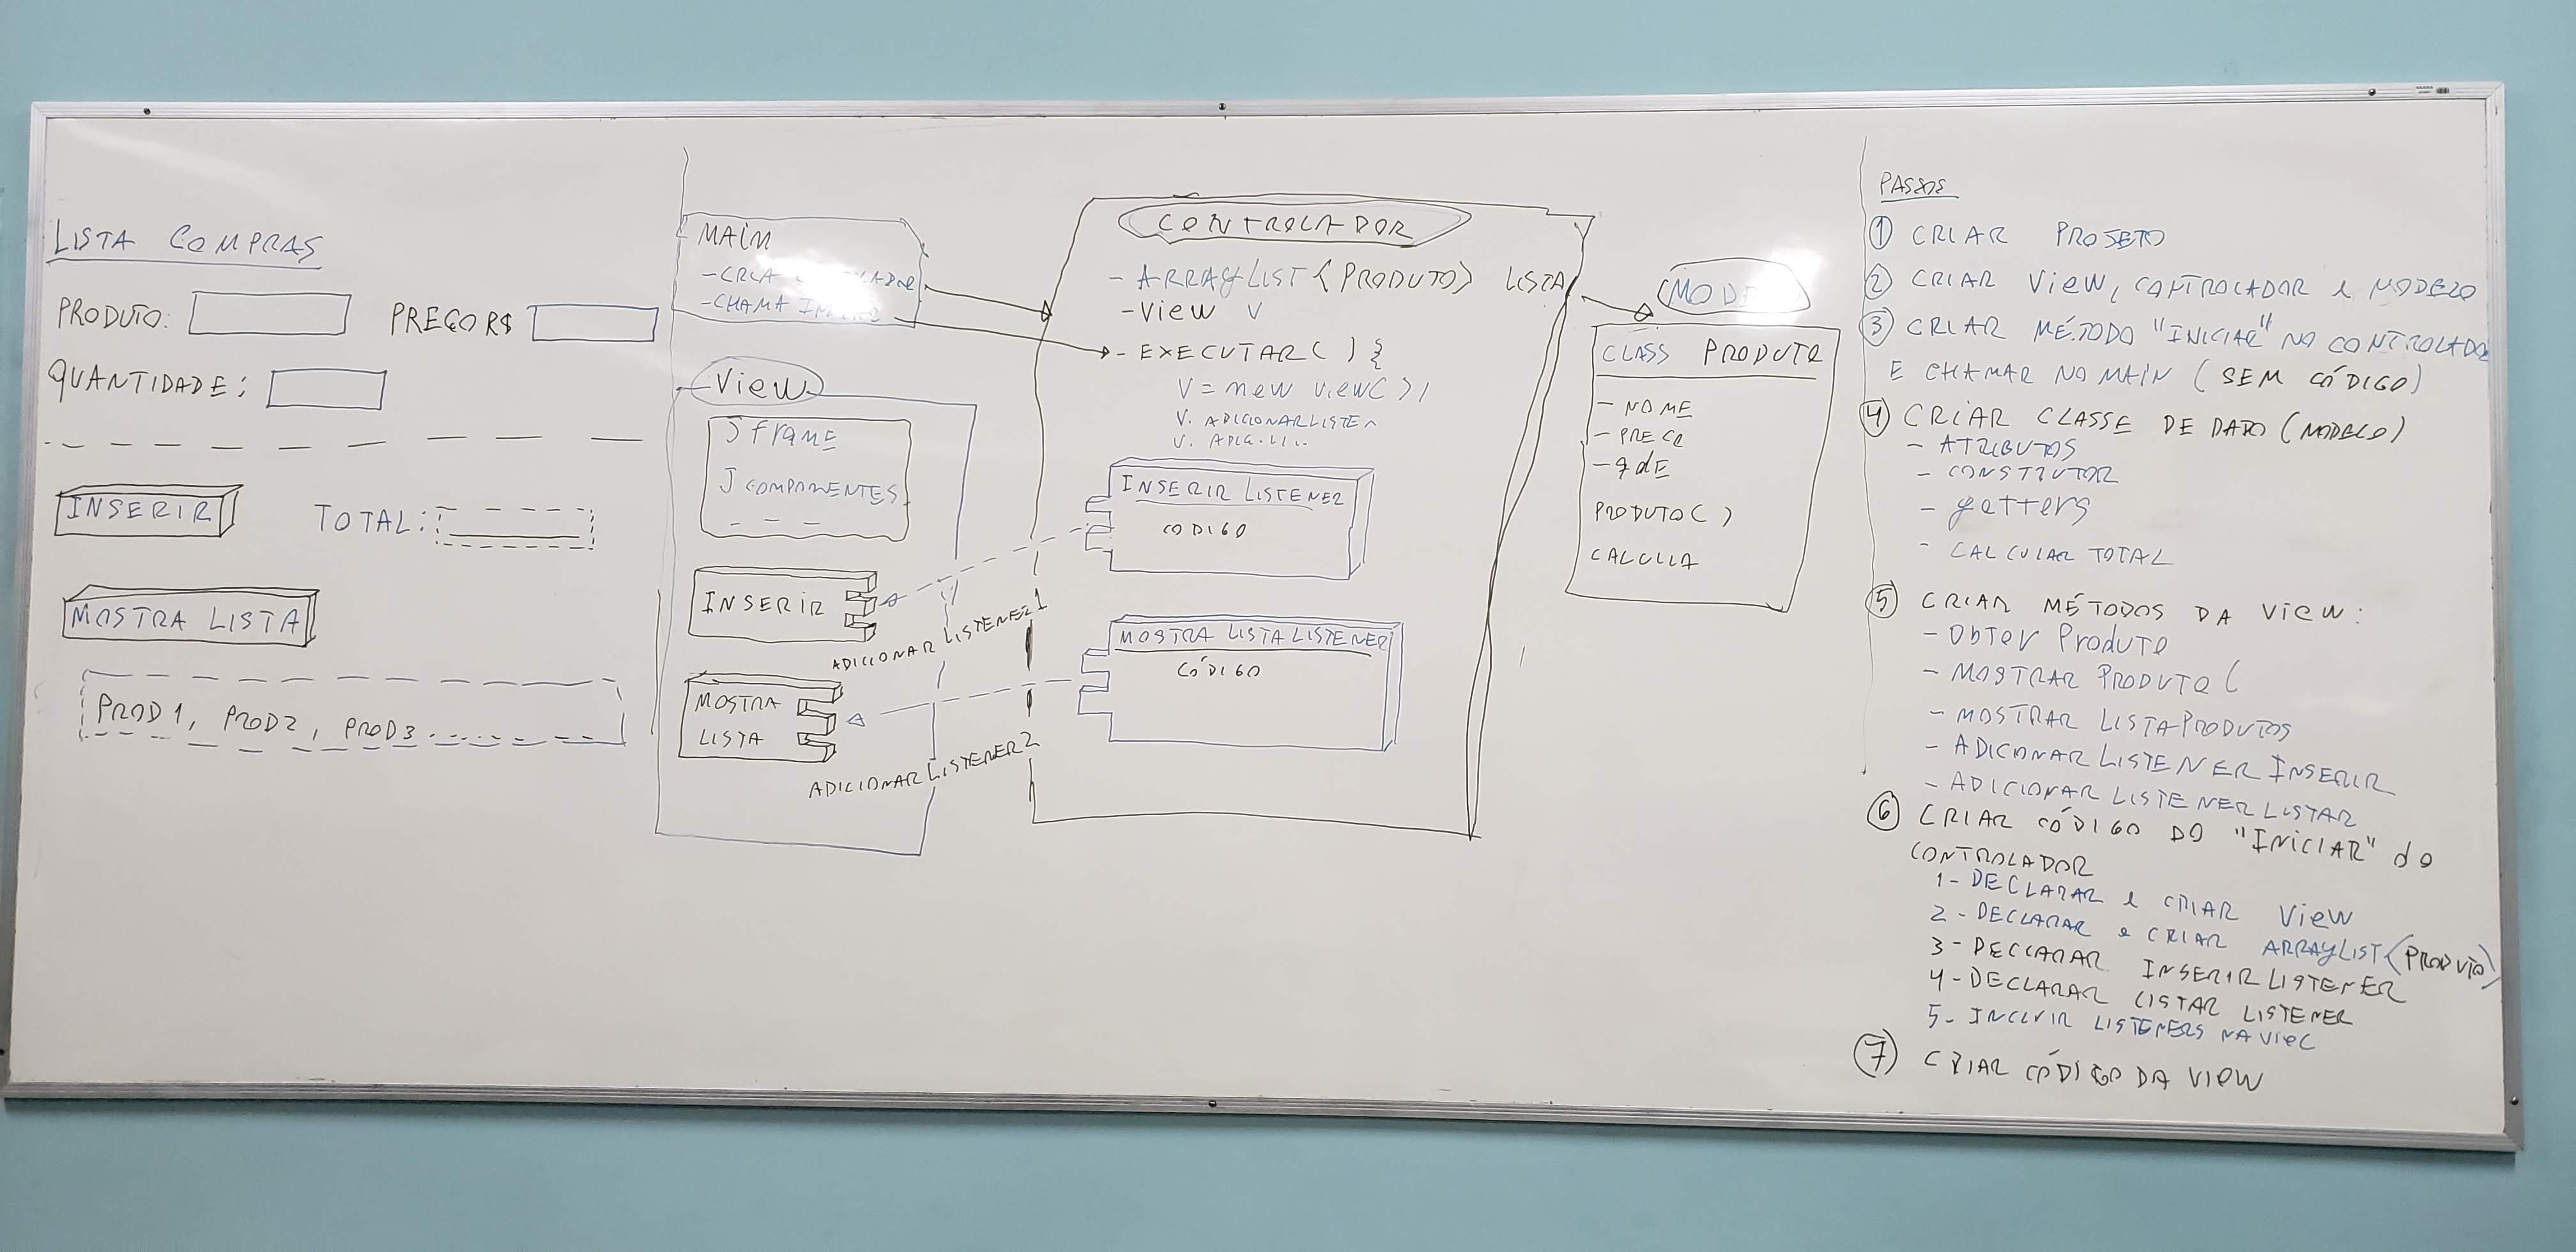 LISTA COMPRAS
PRODUTO:
PREÇO R$
QUANTIDADE:
INSERIR
TOTAL:
MOSTRA LISTA
PROD1, PROD2, PROD3......
MAIN
- CRIA
- CHAMA
View
JFRAME
JCOMPONENTES
INSERIR
ADICIONAR LISTENER1
MOSTRA
LISTA
ADICIONAR LISTENER2
CONTROLADOR
- ARRAYLIST <PRODUTO> LISTA
- View V
- EXECUTAR() {
V = new view();
V. ADICIONARLISTEN
INSERIR LISTENER
CODIGO
MOSTRA LISTA LISTENER
CÓDIGO
MODE
CLASS PRODUTO
- NOME
- PREÇO
- qdE
PRODUTO()
CALCULA
PASSOS
1 CRIAR PROJETO
2 CRIAR View, CONTROLADOR e MODELO
3 CRIAR MÉTODO "INICIAR" NO CONTROLADOR
E CHAMAR NO MAIN (SEM CÓDIGO)
4 CRIAR CLASSE DE DADO (MODELO)
- ATRIBUTOS
- CONSTRUTOR
- getters
- CALCULAR TOTAL
5 CRIAR MÉTODOS DA View:
- Obter Produto
- MOSTRAR PRODUTO (
- MOSTRAR LISTAPRODUTOS
- ADICIONAR LISTENER INSERIR
- ADICIONAR LISTENER LISTAR
6 CRIAR CÓDIGO DO "INICIAR" do
CONTROLADOR
1- DECLARAR e CRIAR View
2- DECLARAR e CRIAR ARRAYLIST<PRODUTO>
3- DECLARAR INSERIR LISTENER
4- DECLARAR LISTAR LISTENER
5- INCLUIR LISTENERS NA
7 CRIAR CÓDIGO DA VIEW